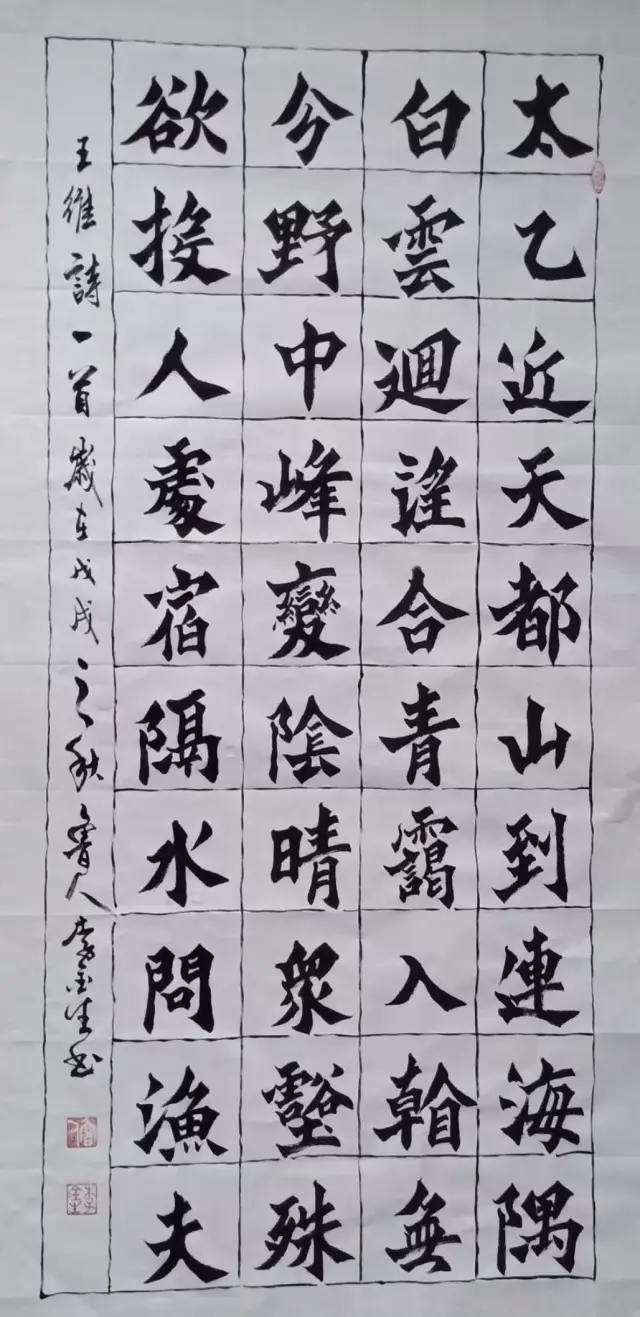 太乙近天都山到連海隅
白雲迴望合青靄入看無
分野中峰變陰晴衆壑殊
欲投人處宿隔水問漁夫
王維詩一首歲在戊戌之秋魯人李金生書